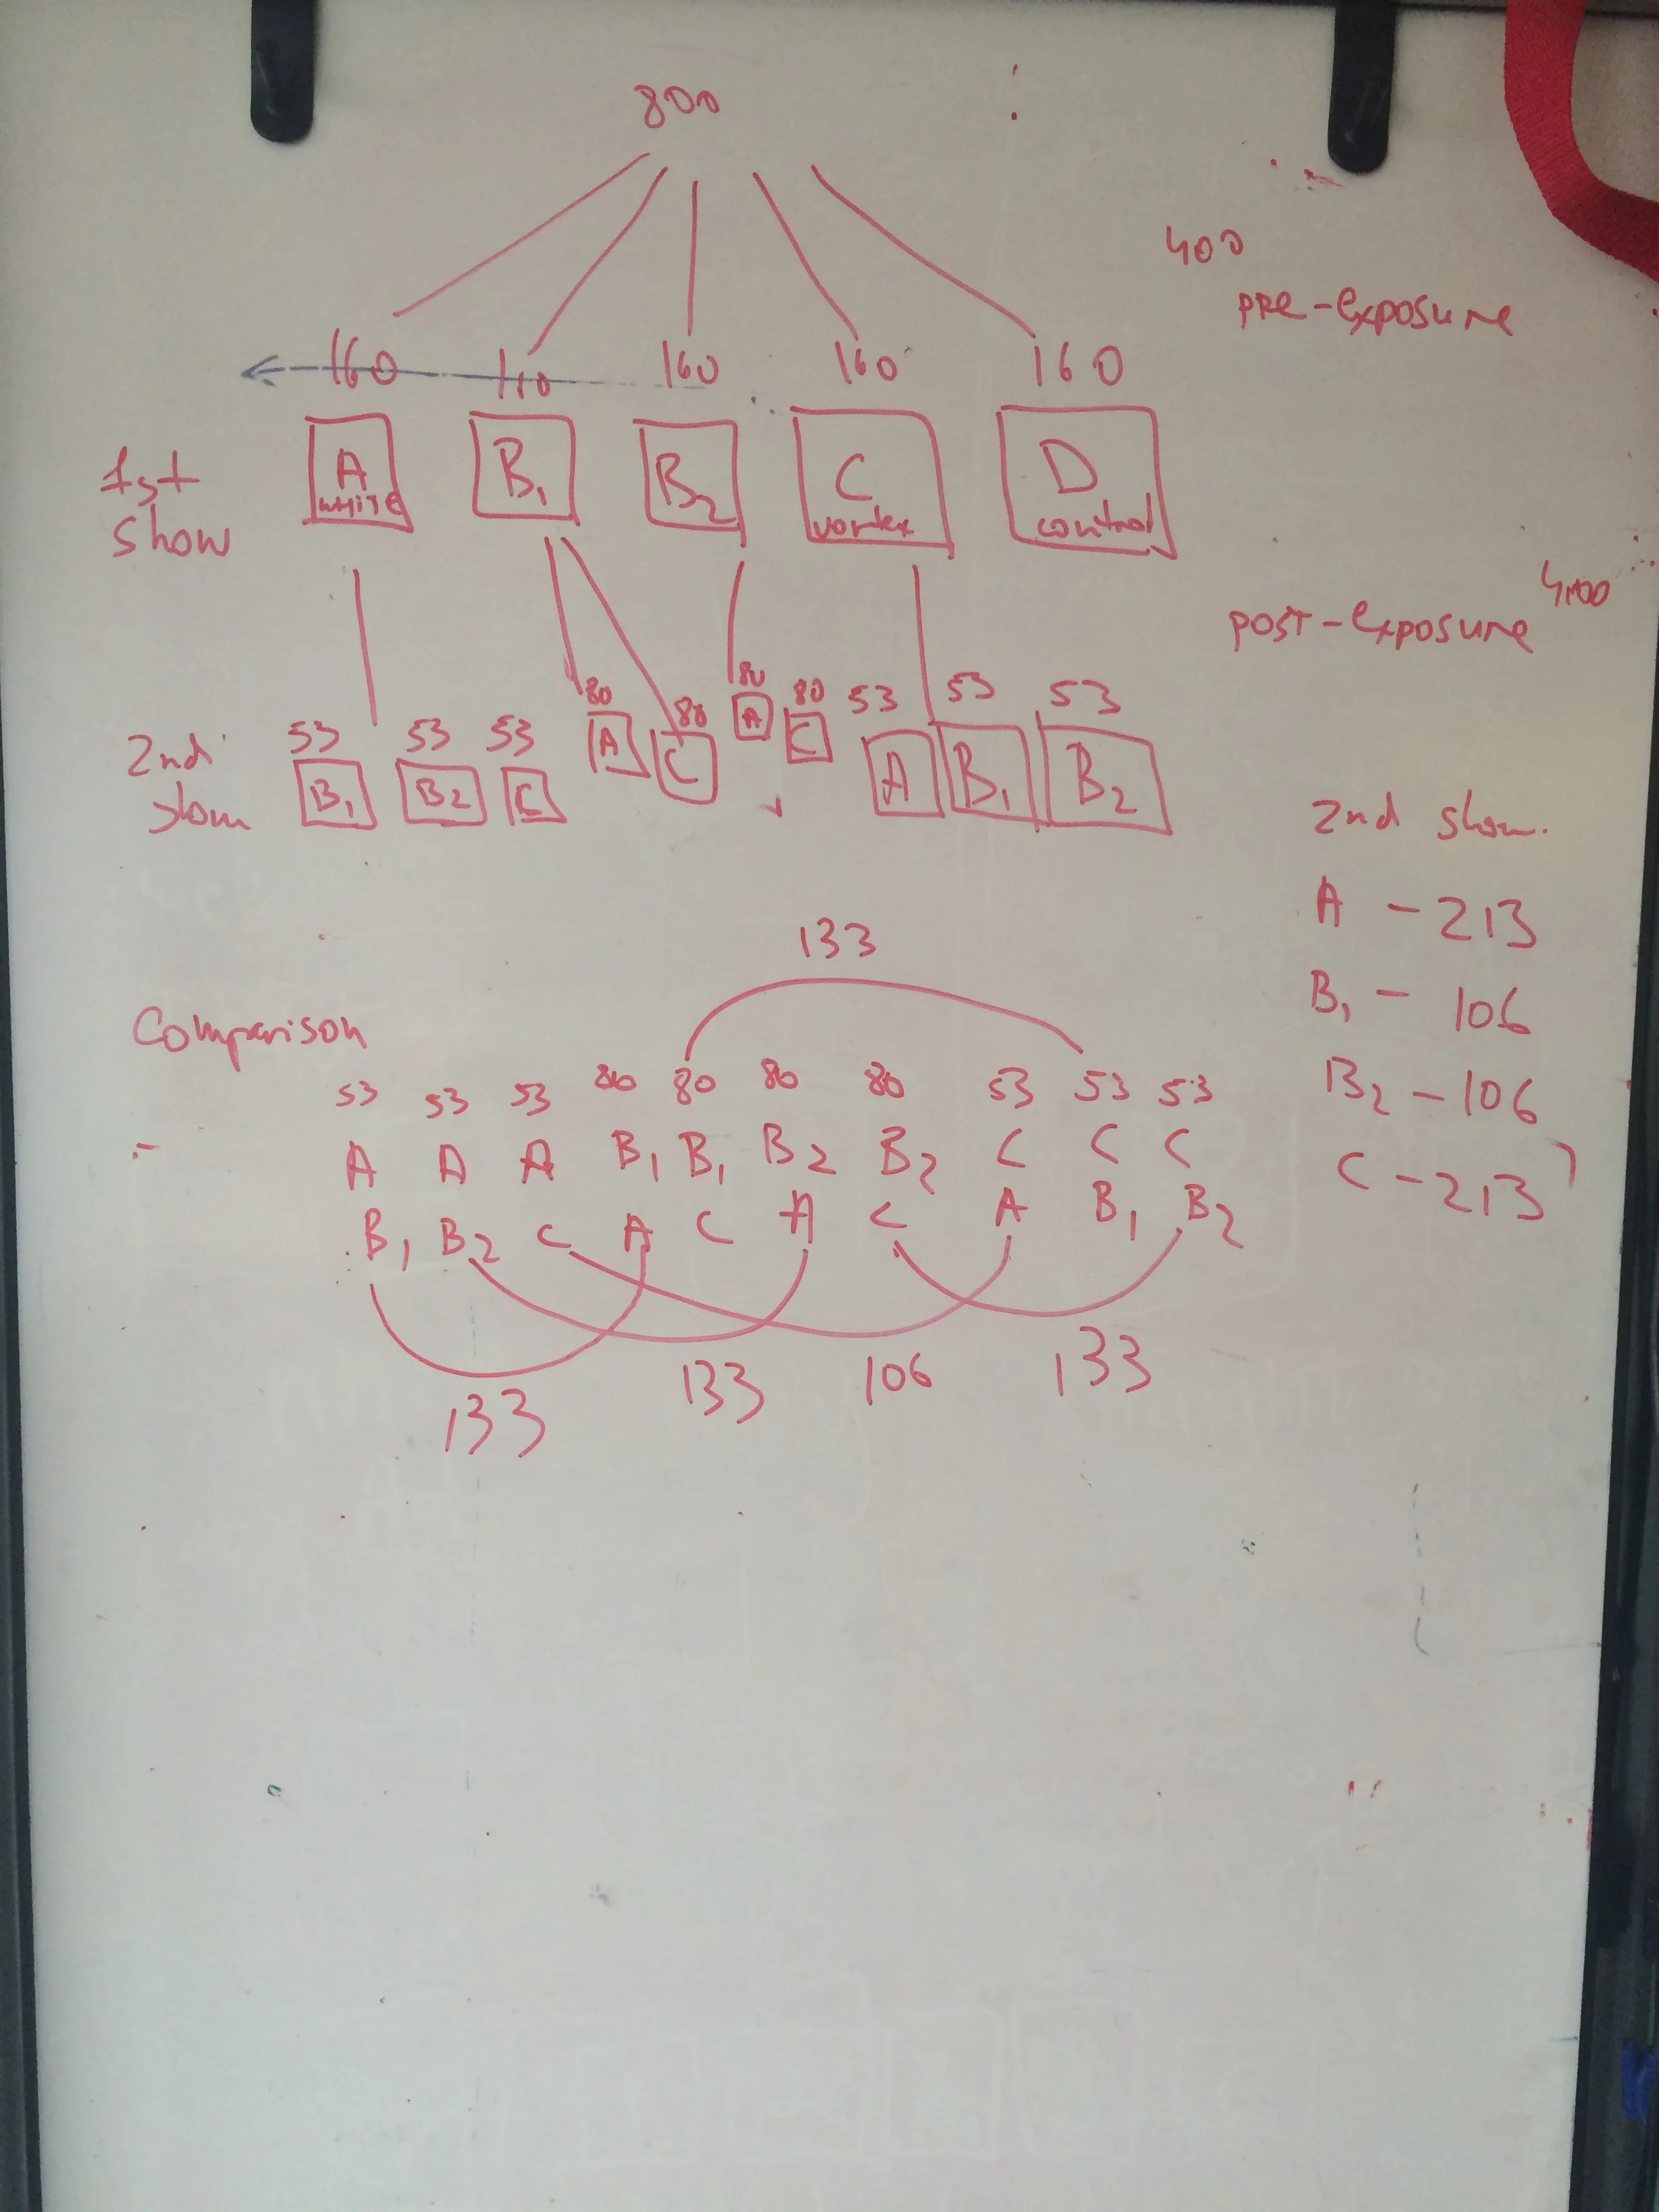 800
400
pre-exposure
160 160 160 160 160
1st show
A white
B1
B2
C vortex
D control
post-exposure 400
53 53 53 80 80 80 80 53 53 53
2nd show
B1 B2 C A C A C A B1 B2
2nd show.
A - 213
B1 - 106
B2 - 106
C - 213
133
Comparison
53 53 53 80 80 80 80 53 53 53
A A A B1 B1 B2 B2 C C C
B1 B2 C A C A C A B1 B2
133 133 106 133